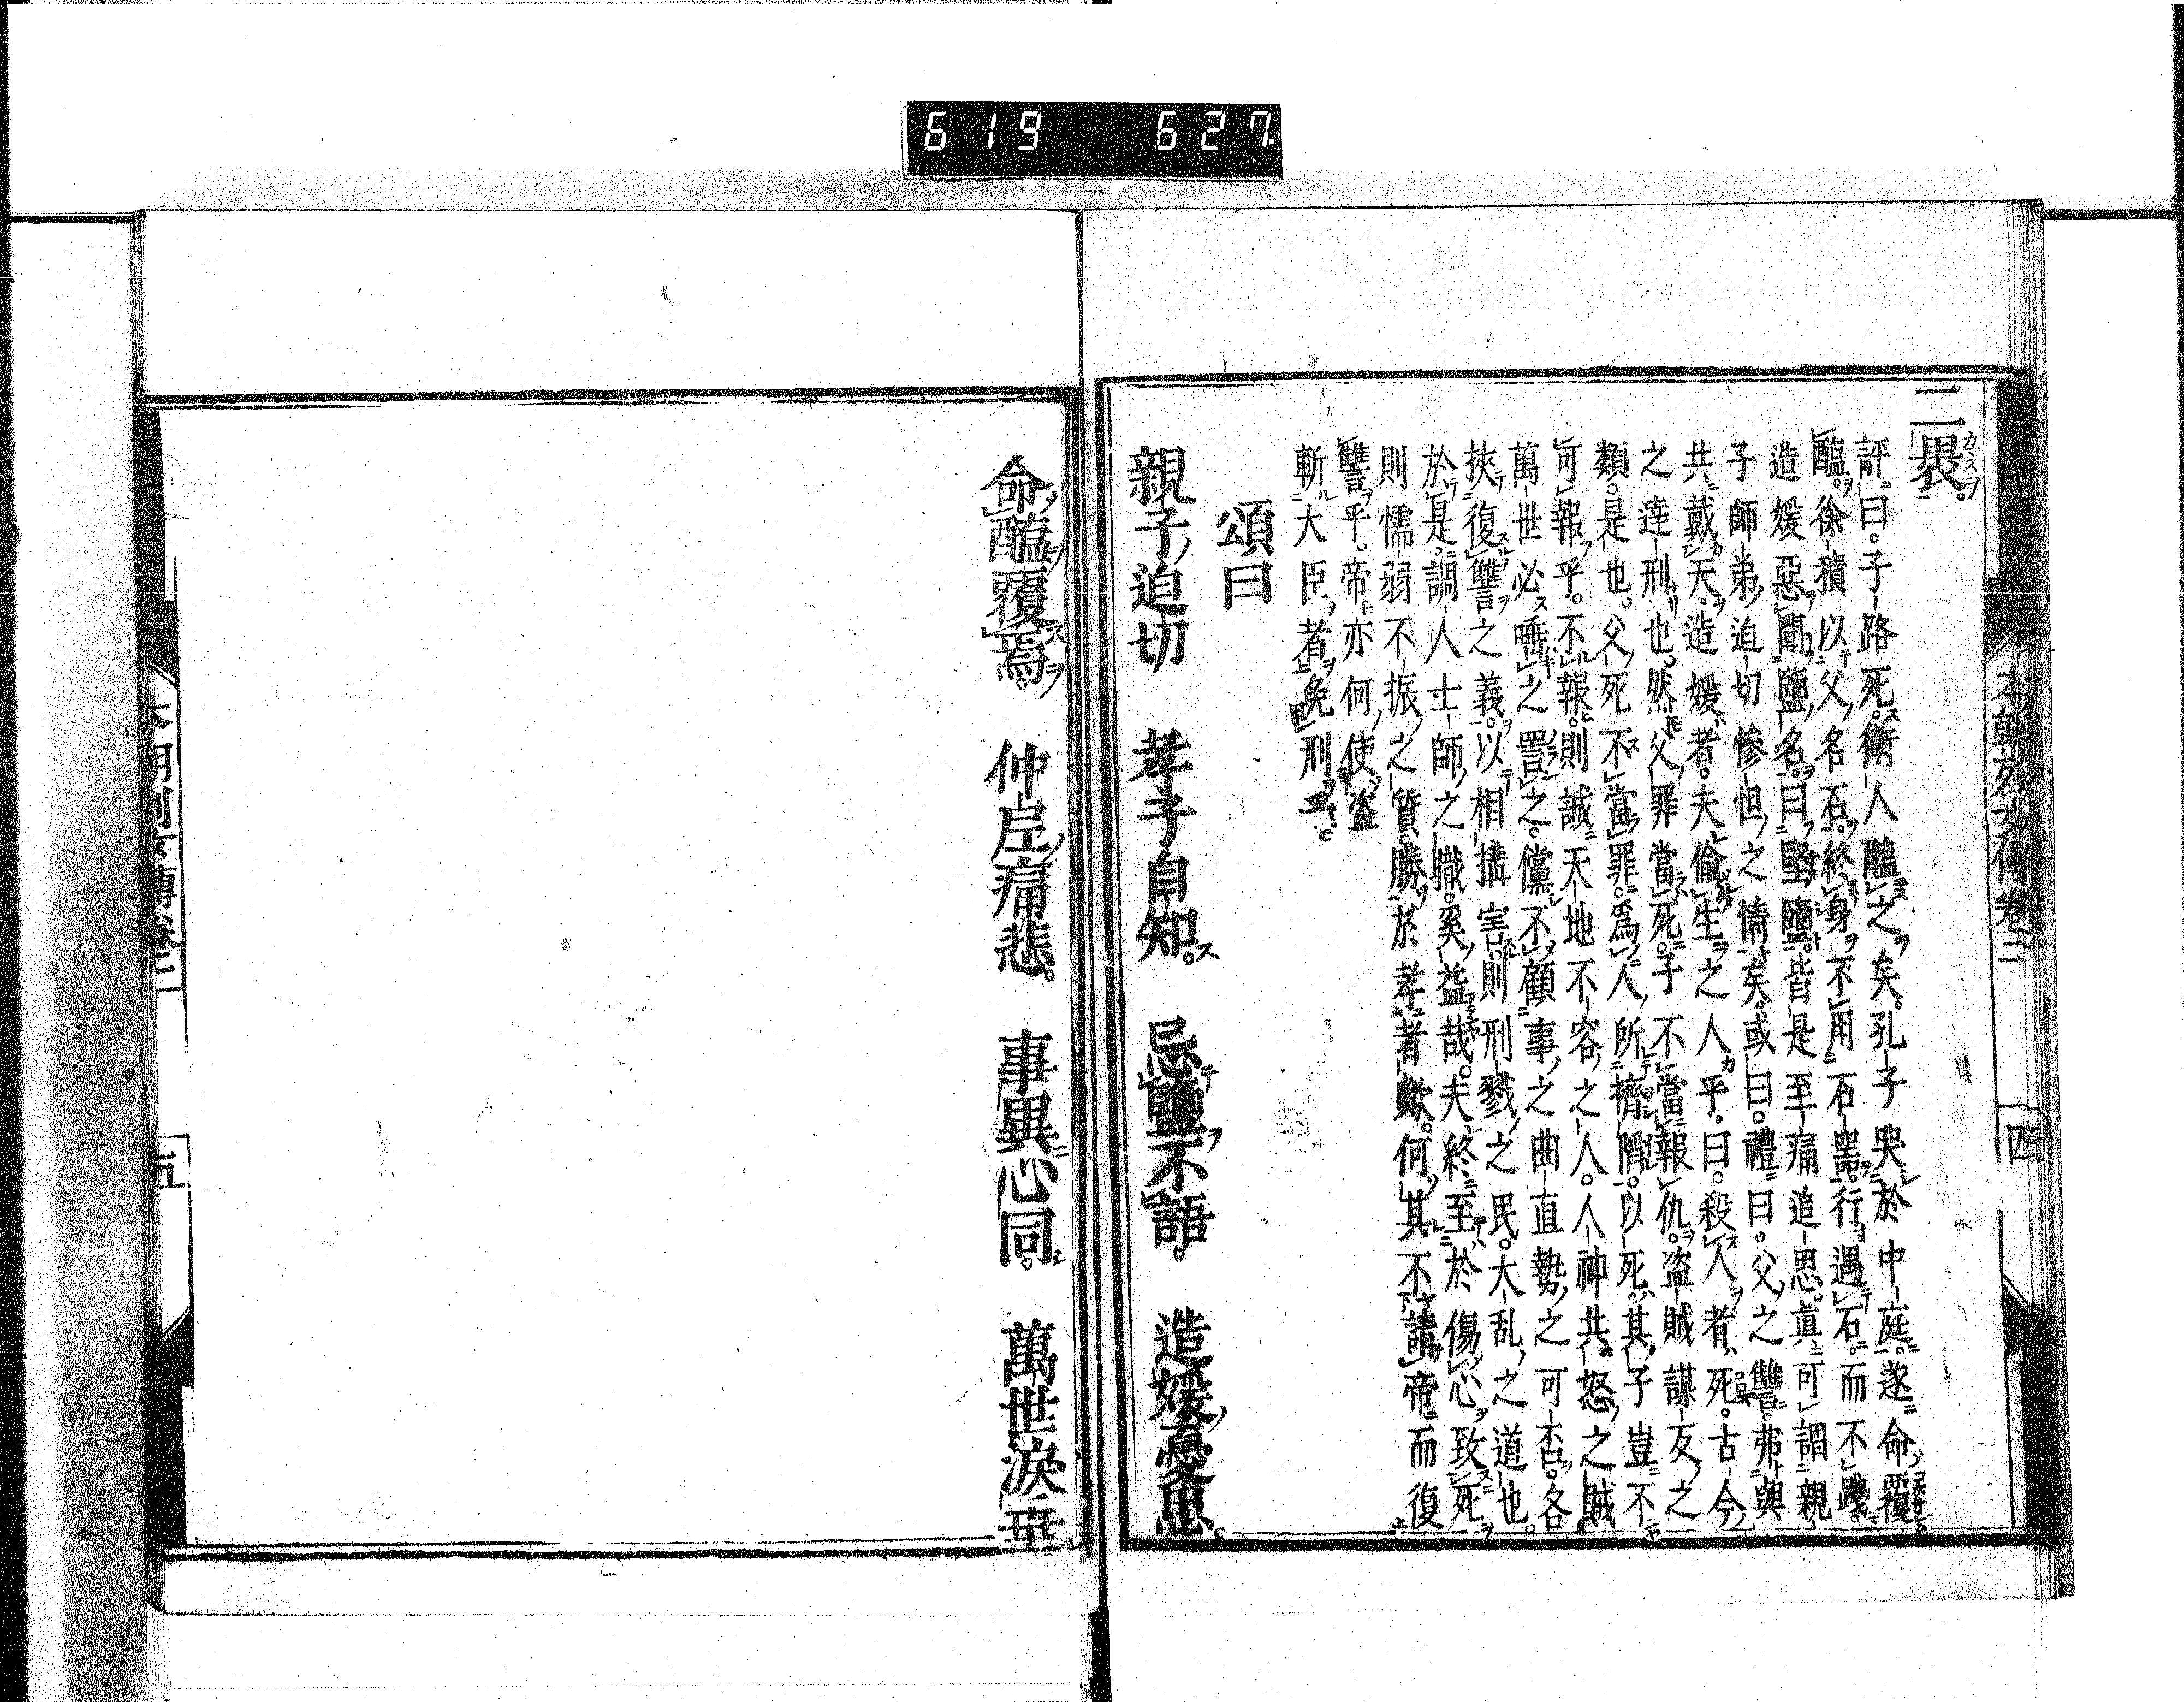 619 627
二畏。
評曰。子路死。衛人醢之矣。孔子哭於中庭。遂命覆
醢。徐積以父名石。終身不用石噐。行遇石。而不踐。
造媛惡聞鹽名。曰堅鹽。皆是至痛追思。真可謂親
子師弟迫切慘怛之情矣。或曰。禮曰。父之讐。弗與
共戴天。造媛者。夫偷生之人乎。曰。殺人者死。古今
之達刑也。然父罪當死。子不當報仇。盜賊謀友之
類。是也。父死不當罪。爲人所擠陷。以死。其子豈不
可報乎。不報。則誠天地不容之人。人神共怒之賊
萬世必唾之詈之。儻不顧事之曲直勢之可否。各
挾復讐之義。以相搆害。則刑戮之民。大乱之道也。
於是。調人士師之職。奚益哉。夫終至於傷心致死
則懦弱不振之質。勝於孝者歟。何其不請帝而復
讐乎。帝亦何使盜
斬大臣者免刑乎。
頌曰
親子迫切 孝子自知。 忌鹽不語。 造媛憂思。
命醢覆焉。 仲尼痛悲。 事異心同。 萬世淚垂
本朝列女傳卷二 四
本朝列女傳卷二 五